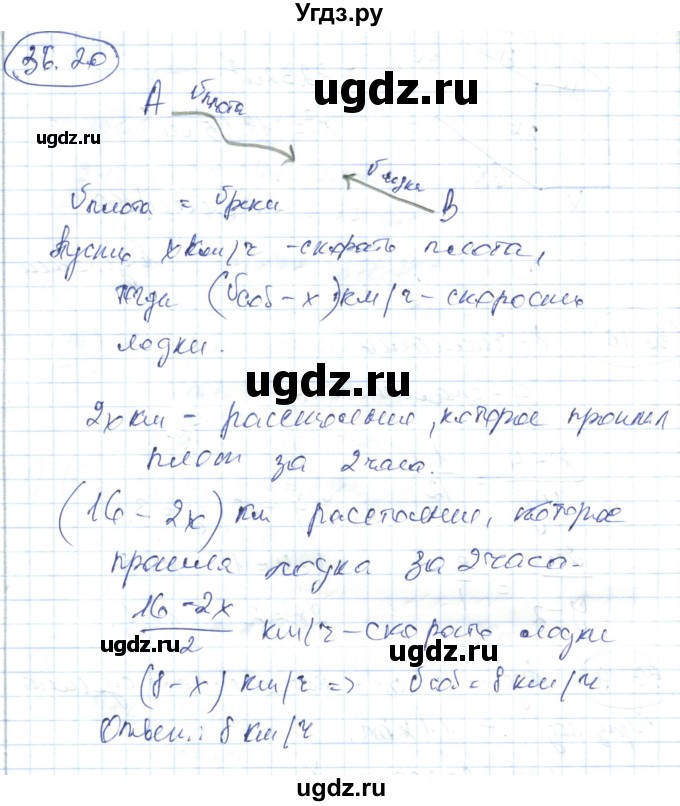 Угдз.ру
36.20
ugdz.ru
ugdz.ru
ugdz.ru
A υплота
υлодки B
υплота = υреки
Пусть x км/ч - скорость плота,
тогда (υсоб - x) км/ч - скорость
лодки.
ugdz.ru
2x км - расстояние, которое прошел
плот за 2 часа.
(16 - 2x) км расстояние, которое
ugdz.ru
прошла лодка за 2 часа.
16 - 2x
2
км/ч - скорость лодки
ugdz.ru
ugdz.ru
(8 - x) км/ч => υсоб = 8 км/ч.
Ответ: 8 км/ч
ugdz.ru